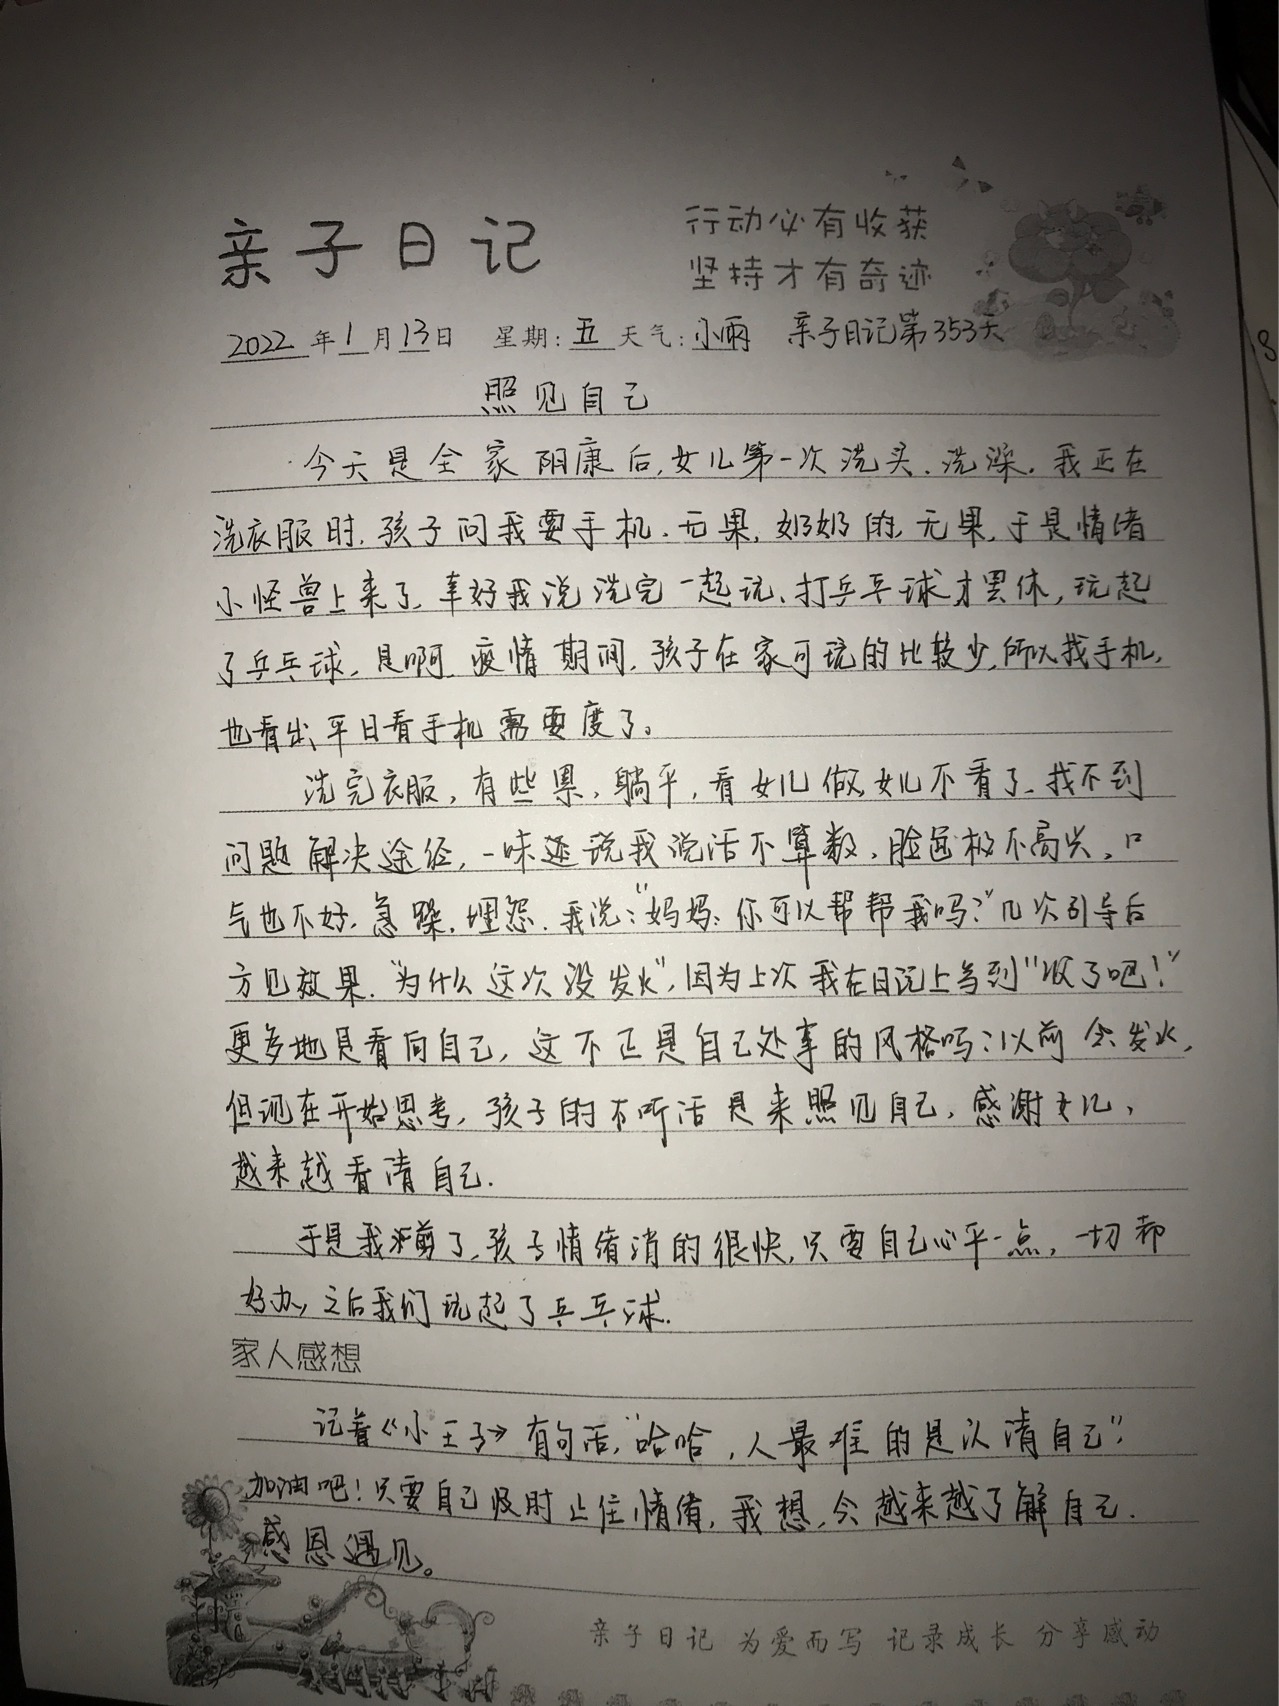 亲子日记
行动必有收获
坚持才有奇迹
2022年1月13日 星期:五 天气:小雨 亲子日记第353天
照见自己
今天是全家阳康后,女儿第一次洗头、洗澡。我正在
洗衣服时,孩子问我要手机、无果,奶奶的,无果,于是情绪
小怪兽上来了,幸好我说洗完一起玩、打乒乓球才罢休,玩起
了乒乓球,是啊,疫情期间,孩子在家可玩的比较少,所以找手机,
也看出平日看手机需要度了。
洗完衣服,有些累,躺平,看女儿做,女儿不看了,找不到
问题解决途径,一味说我说话不算数,脸色极不高兴,口
气也不好,急躁,埋怨,我说:“妈妈:你可以帮帮我吗?”几次引导后
方见效果.“为什么这次没发火”,因为上次我在日记上写到“收了吧!”
更多地是看向自己,这不正是自己处事的风格吗?以前会发火,
但现在开始思考,孩子的不听话是来照见自己,感谢女儿,
越来越看清自己.
于是我了,孩子情绪消的很快,只要自己心平一点,一切都
好办,之后我们玩起了乒乓球.
家人感想
记着《小王子》有句话,“哈哈,人最难的是认清自己”,
加油吧!只要自己及时止住情绪,我想,会越来越了解自己.
感恩遇见。
亲子日记 为爱而写 记录成长 分享感动